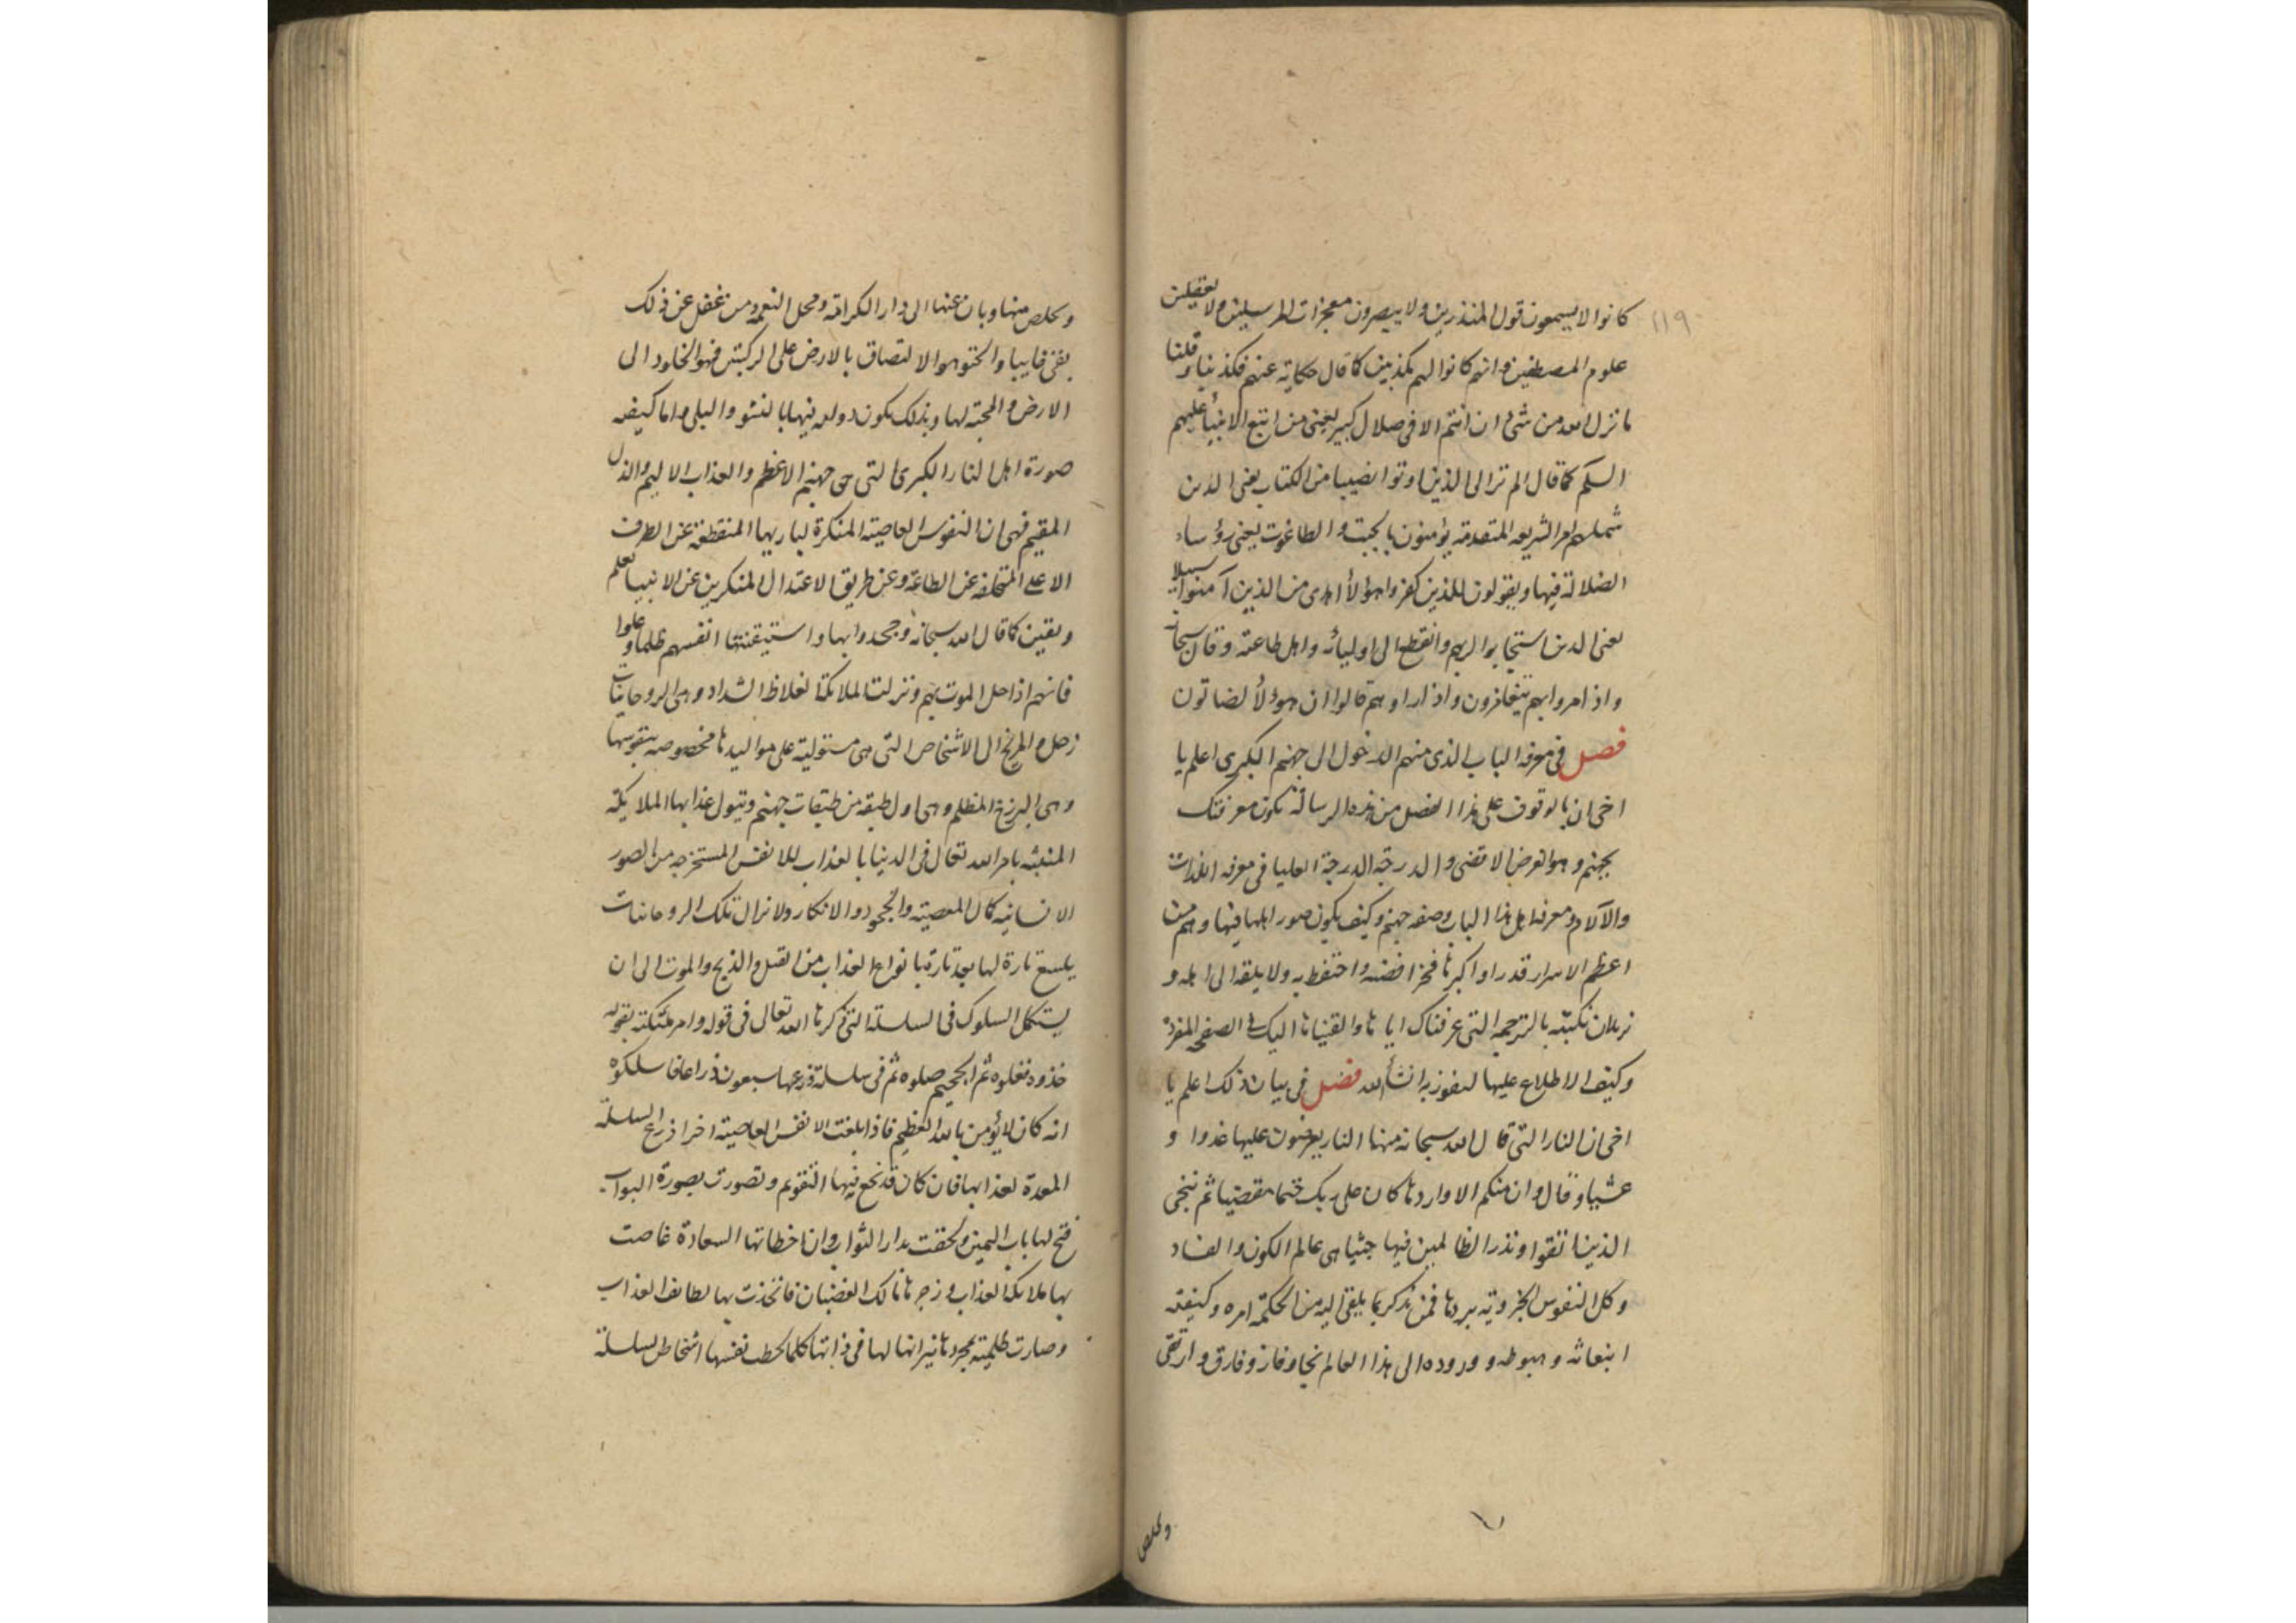 ١١٩
كانوا لا يسمعون قول المنذرين ولا يبصرون معجزات المرسلين ولا يعقلون
علوم المصطفين وانهم كانوا لهم مكذبين كما قال حكاية عنهم فكذبنا وقلنا
ما نزل الله من شئ ان انتم الا فى ضلال كبير يعنى من اتبع الانبياء عليهم
السلم كما قال الم تر الى الذين اوتوا نصيبا من الكتاب يعنى الذين
شملهم امر الشريعه المتقدمة يؤمنون بالجبت والطاغوت يعنى رؤساء
الضلالة فيها ويقولون للذين كفروا هؤلاء اهدى من الذين آمنوا سبيلا
يعنى الذين استجابوا لربهم وانقطع الى اوليائه واهل طاعته وقال سبحانه
واذا مروا بهم يتغامزون واذا راوهم قالوا ان هؤلاء لضالون
فصل فى معرفه الباب الذى منهم الدخول الى جهنم الكبرى اعلم يا
اخى ان بالوقوف على هذا الفصل من هذه الرسالة تكون معرفتك
بجهنم وهو الغرض الاقصى والدرجة الدرجة العليا فى معرفه اللذات
والآلام ومعرفه اهل هذا الباب وصفه جهنم وكيف يكون صور اهلها فيها وهم من
اعظم الاسرار قدرا واكبرها فخرا فصنه واحتفظ به ولا يلقه الى اهله و
نريد ان نكتبه بالترجمه التى عرفناك اياها والقيناها اليك فى الصفحه المفردة
وكيف الاطلاع عليها لتفوز به انشاء الله فصل فى بيان ذلك اعلم يا
اخى ان النار التى قال الله سبحانه منها النار يعرضون عليها غدوا و
عشيا وقال وان منكم الا واردها كان على ربك حتما مقضيا ثم ننجى
الذين اتقوا ونذر الظالمين فيها جثيا هى عالم الكون والفساد
وكل النفوس الجزوية يردها فمن تذكر بما يلقى اليه من الحكمة امره وكيفية
انبعاثه وهبوطه ووروده الى هذا العالم نجا وفاز وفارق وارتقى
وتخلص
وتخلص منها وبان عنها الى دار الكرامة ومحل النعمه ومن غفل عن ذلك
بقى فيها والجثو هو الالتصاق بالارض على الركبتين فهو الخلود الى
الارض والمحبة لها وبذلك يكون دوله فيها بالنشو والبلى واما كيفيه
صورة اهل النار الكبرى التى هى جهنم الاعظم والعذاب الاليم والذل
المقيم فهى ان النفوس العاصية المنكرة لباريها المنقطعة عن الطرف
الاعلى المتخلفه عن الطاعة وعن طريق الاعتدال المنكرين عن الانبيا بعلم
ويقين كما قال الله سبحانه وجحدوا بها واستيقنتها انفسهم ظلما وعلوا
فانهم اذا حل الموت بهم ونزلت الملائكة الغلاظ الشداد وهى الروحانيات
زحل والمريخ الى الاشخاص التى هى مستولية على مواليدها مخصوصه بنفوسها
وهى البرزخ المظلم وهى اول طبقه من طبقات جهنم ويتول عذابها الملايكة
المنبثه بامر الله تعالى فى الدنيا بالعذاب للانفس المستخرجه من الصور
الانسانية كمال المعصية والجحود والانكار ولا تزال تلك الروحانيات
تارة لها بعد تارة بانواع العذاب من القتل والذبح والموت الى ان
يستكمل السلوك فى السلسلة التى ذكرها الله تعالى فى قوله وامر ملئكته بقوله
خذوه فغلوه ثم الجحيم صلوه ثم فى سلسلة ذرعها سبعون ذراعا فاسلكوه
انه كان لا يؤمن بالله العظيم فاذا بلغت الانفس العاصية اخر اذرع السلسلة
المعدة لعذابها فان كان قد نجع فيها التقويم وتصورت بصورة البواب
فتح لها باب اليمين ولحقت بدار الثواب وان اخطاتها السعادة غاصت
بها ملائكة العذاب وزجرها مالك الغضبان فاتخذت بها لطايف العذاب
وصارت نيرانها لها فى ذاتها كلما نفسها اشخاص السلسلة